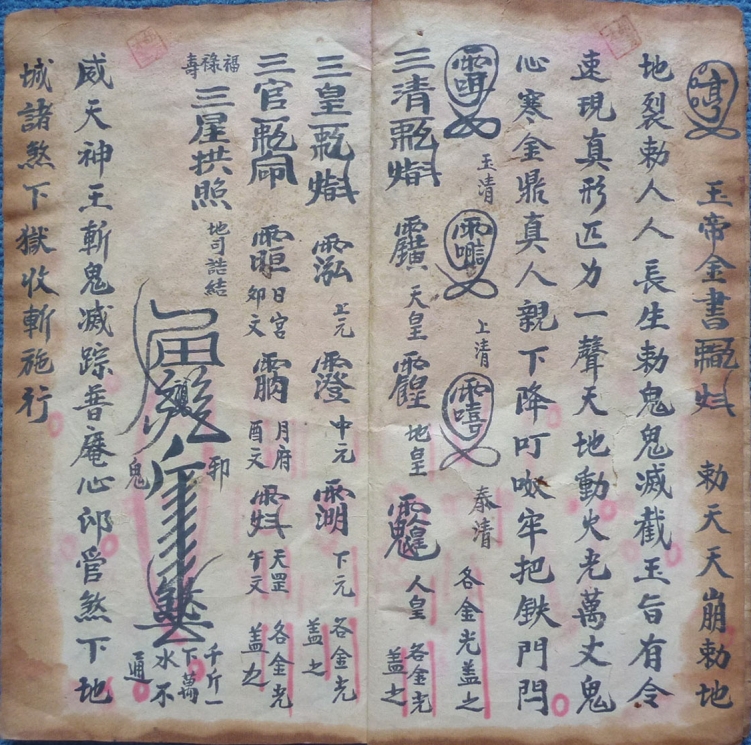 玉帝金書 勅天天崩勅地
地裂勅人人長生勅鬼鬼滅截玉旨有令
速現真形匹力一聲天地動火光萬丈鬼
心寒金鼎真人親下降叮嗷牢把鉄門閂
玉清 上清 泰清 各金光盖之
三清 天皇 地皇 人皇 各金光盖之
三皇 上元 中元 下元 各金光盖之
三官 日宮卯文 月府酉文 天罡午文 各金光盖之
福祿壽三星拱照 地司誥結
鬼 卯 千斤一下萬水不通
威天神王斬鬼滅踪普庵心印管煞下地
城諸煞下獄收斬施行